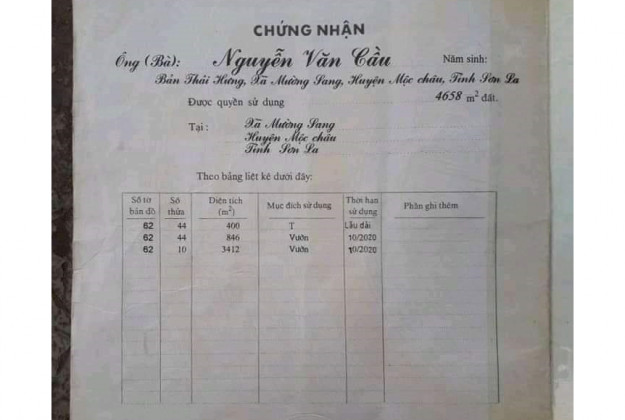 CHỨNG NHẬN
Ông (Bà): Nguyễn Văn Cầu Năm sinh:
Bản Thái Hưng, Xã Mường Sang, Huyện Mộc châu, Tỉnh Sơn La
Được quyền sử dụng 4658 m² đất.
Tại : Xã Mường Sang
Huyện Mộc châu
Tỉnh Sơn La
Theo bảng liệt kê dưới đây:
Số tờ bản đồ Số thửa Diện tích (m²) Mục đích sử dụng Thời hạn sử dụng Phần ghi thêm
62 44 400 T Lâu dài
62 44 846 Vườn 10/2020
62 10 3412 Vườn 10/2020